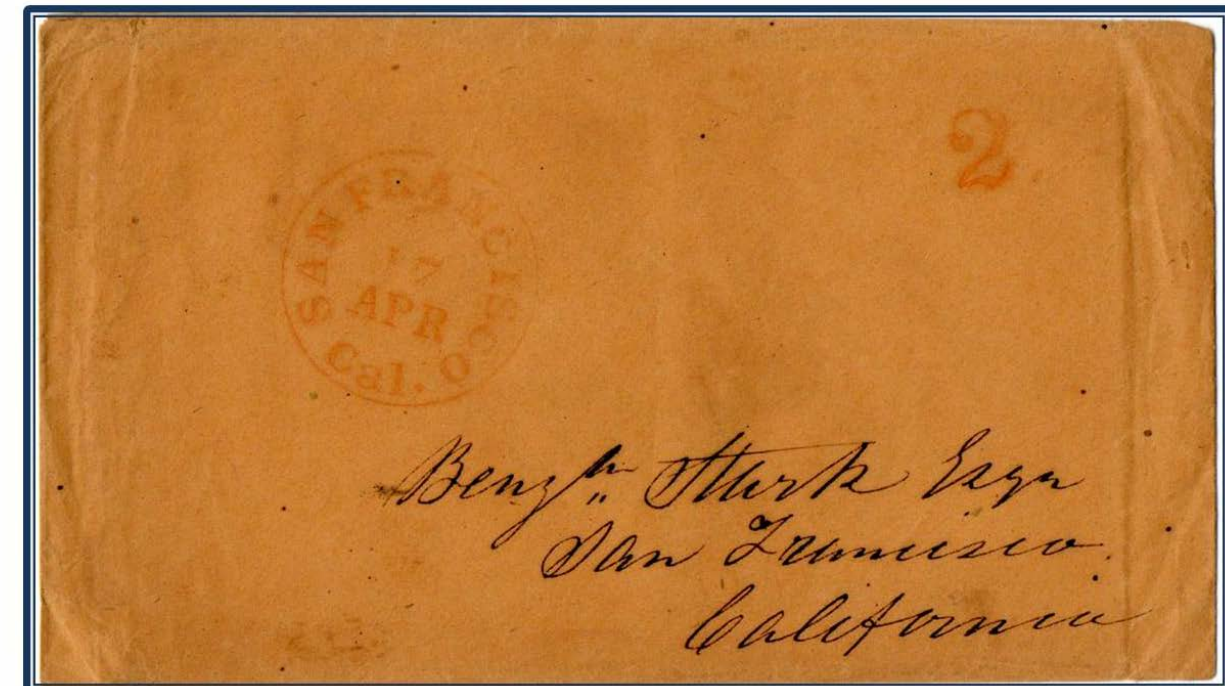 2
SAN FRANCISCO
17
APR
Cal.
Benjn Stark Esqr
San Francisco
California